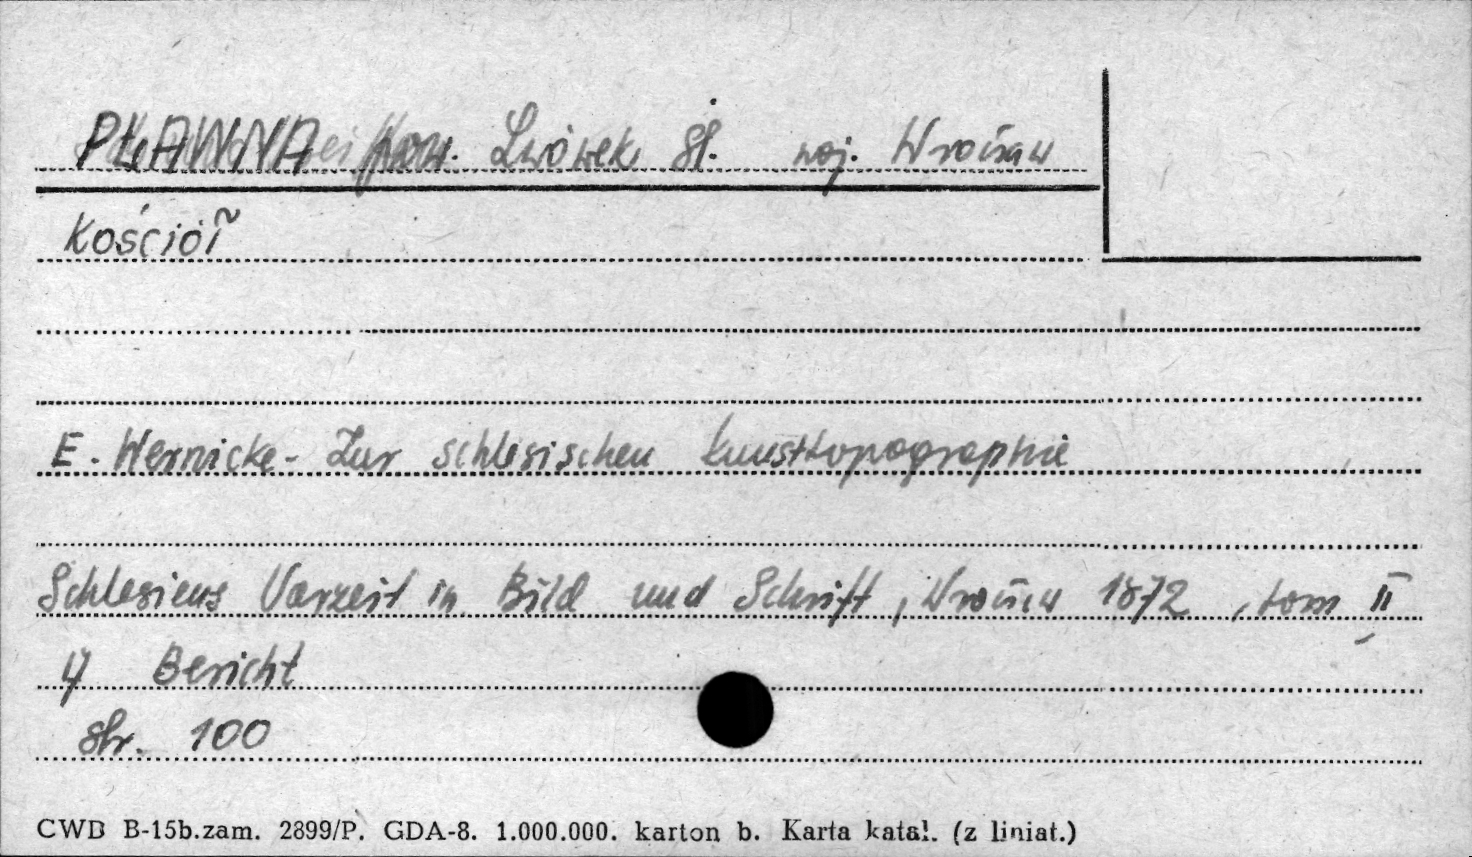 PŁAWNA pow. Lwówek Śl. woj. Wrocław
Kościół
E. Wernicke - Zur schlesischen Kunsttopographie
Schlesiens Vorzeit in Bild und Schrift, Wrocław 1872, tom II
Bericht
str. 100
CWD B-15b.zam. 2899/P. GDA-8. 1.000.000. karton b. Karta katal. (z liniat.)